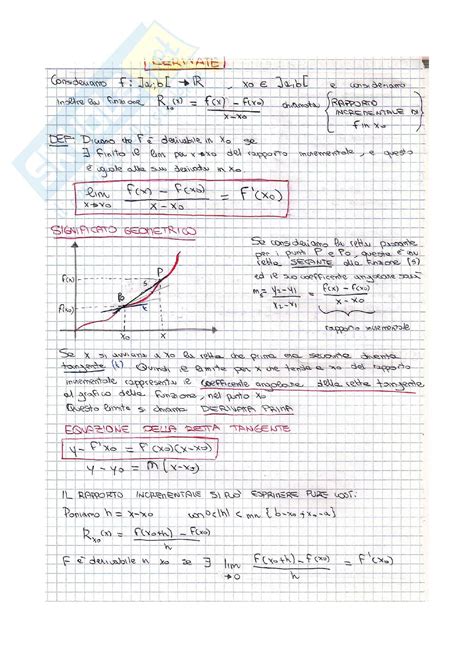 DERIVATE
Consideriamo f: ]a;b[ → ℝ , x₀ ∈ ]a,b[ e consideriamo
inoltre la funzione R_{x₀}(x) = (f(x) − f(x₀)) / (x − x₀) chiamata {RAPPORTO INCREMENTALE DI f in x₀}
DEF: Diciamo che f è derivabile in x₀ se
∃ finito il lim per x→x₀ del rapporto incrementale, e questo
è uguale alla sua derivata in x₀
lim x→x₀ (f(x) − f(x₀)) / (x − x₀) = f'(x₀)
SIGNIFICATO GEOMETRICO
Se consideriamo la retta passante
per i punti P e P₀, questa è una
retta SECANTE alla funzione (s)
ed il suo coefficiente angolare sarà
m_s = (y₂ − y₁) / (x₂ − x₁) = (f(x) − f(x₀)) / (x − x₀)
rapporto incrementale
f(x)
f(x₀)
P₀
s
P
t
x₀
x
Se x si avvicina a x₀ la retta che prima era secante diventa
tangente (t) Quindi il limite per x che tende a x₀ del rapporto
incrementale rappresenta il coefficiente angolare della retta tangente
al grafico della funzione, nel punto x₀
Questo limite si chiama DERIVATA PRIMA
EQUAZIONE DELLA RETTA TANGENTE
y − f'x₀ = f'(x₀)(x−x₀)
y − y₀ = m(x−x₀)
IL RAPPORTO INCREMENTALE SI PUÒ ESPRIMERE PURE COSÌ:
Poniamo h = x−x₀ con 0<|h| < min {b−x₀, x₀−a}
R_{x₀}(x) = (f(x₀+h) − f(x₀)) / h
f è derivabile in x₀ se ∃ lim →0 (f(x₀+h) − f(x₀)) / h = f'(x₀)